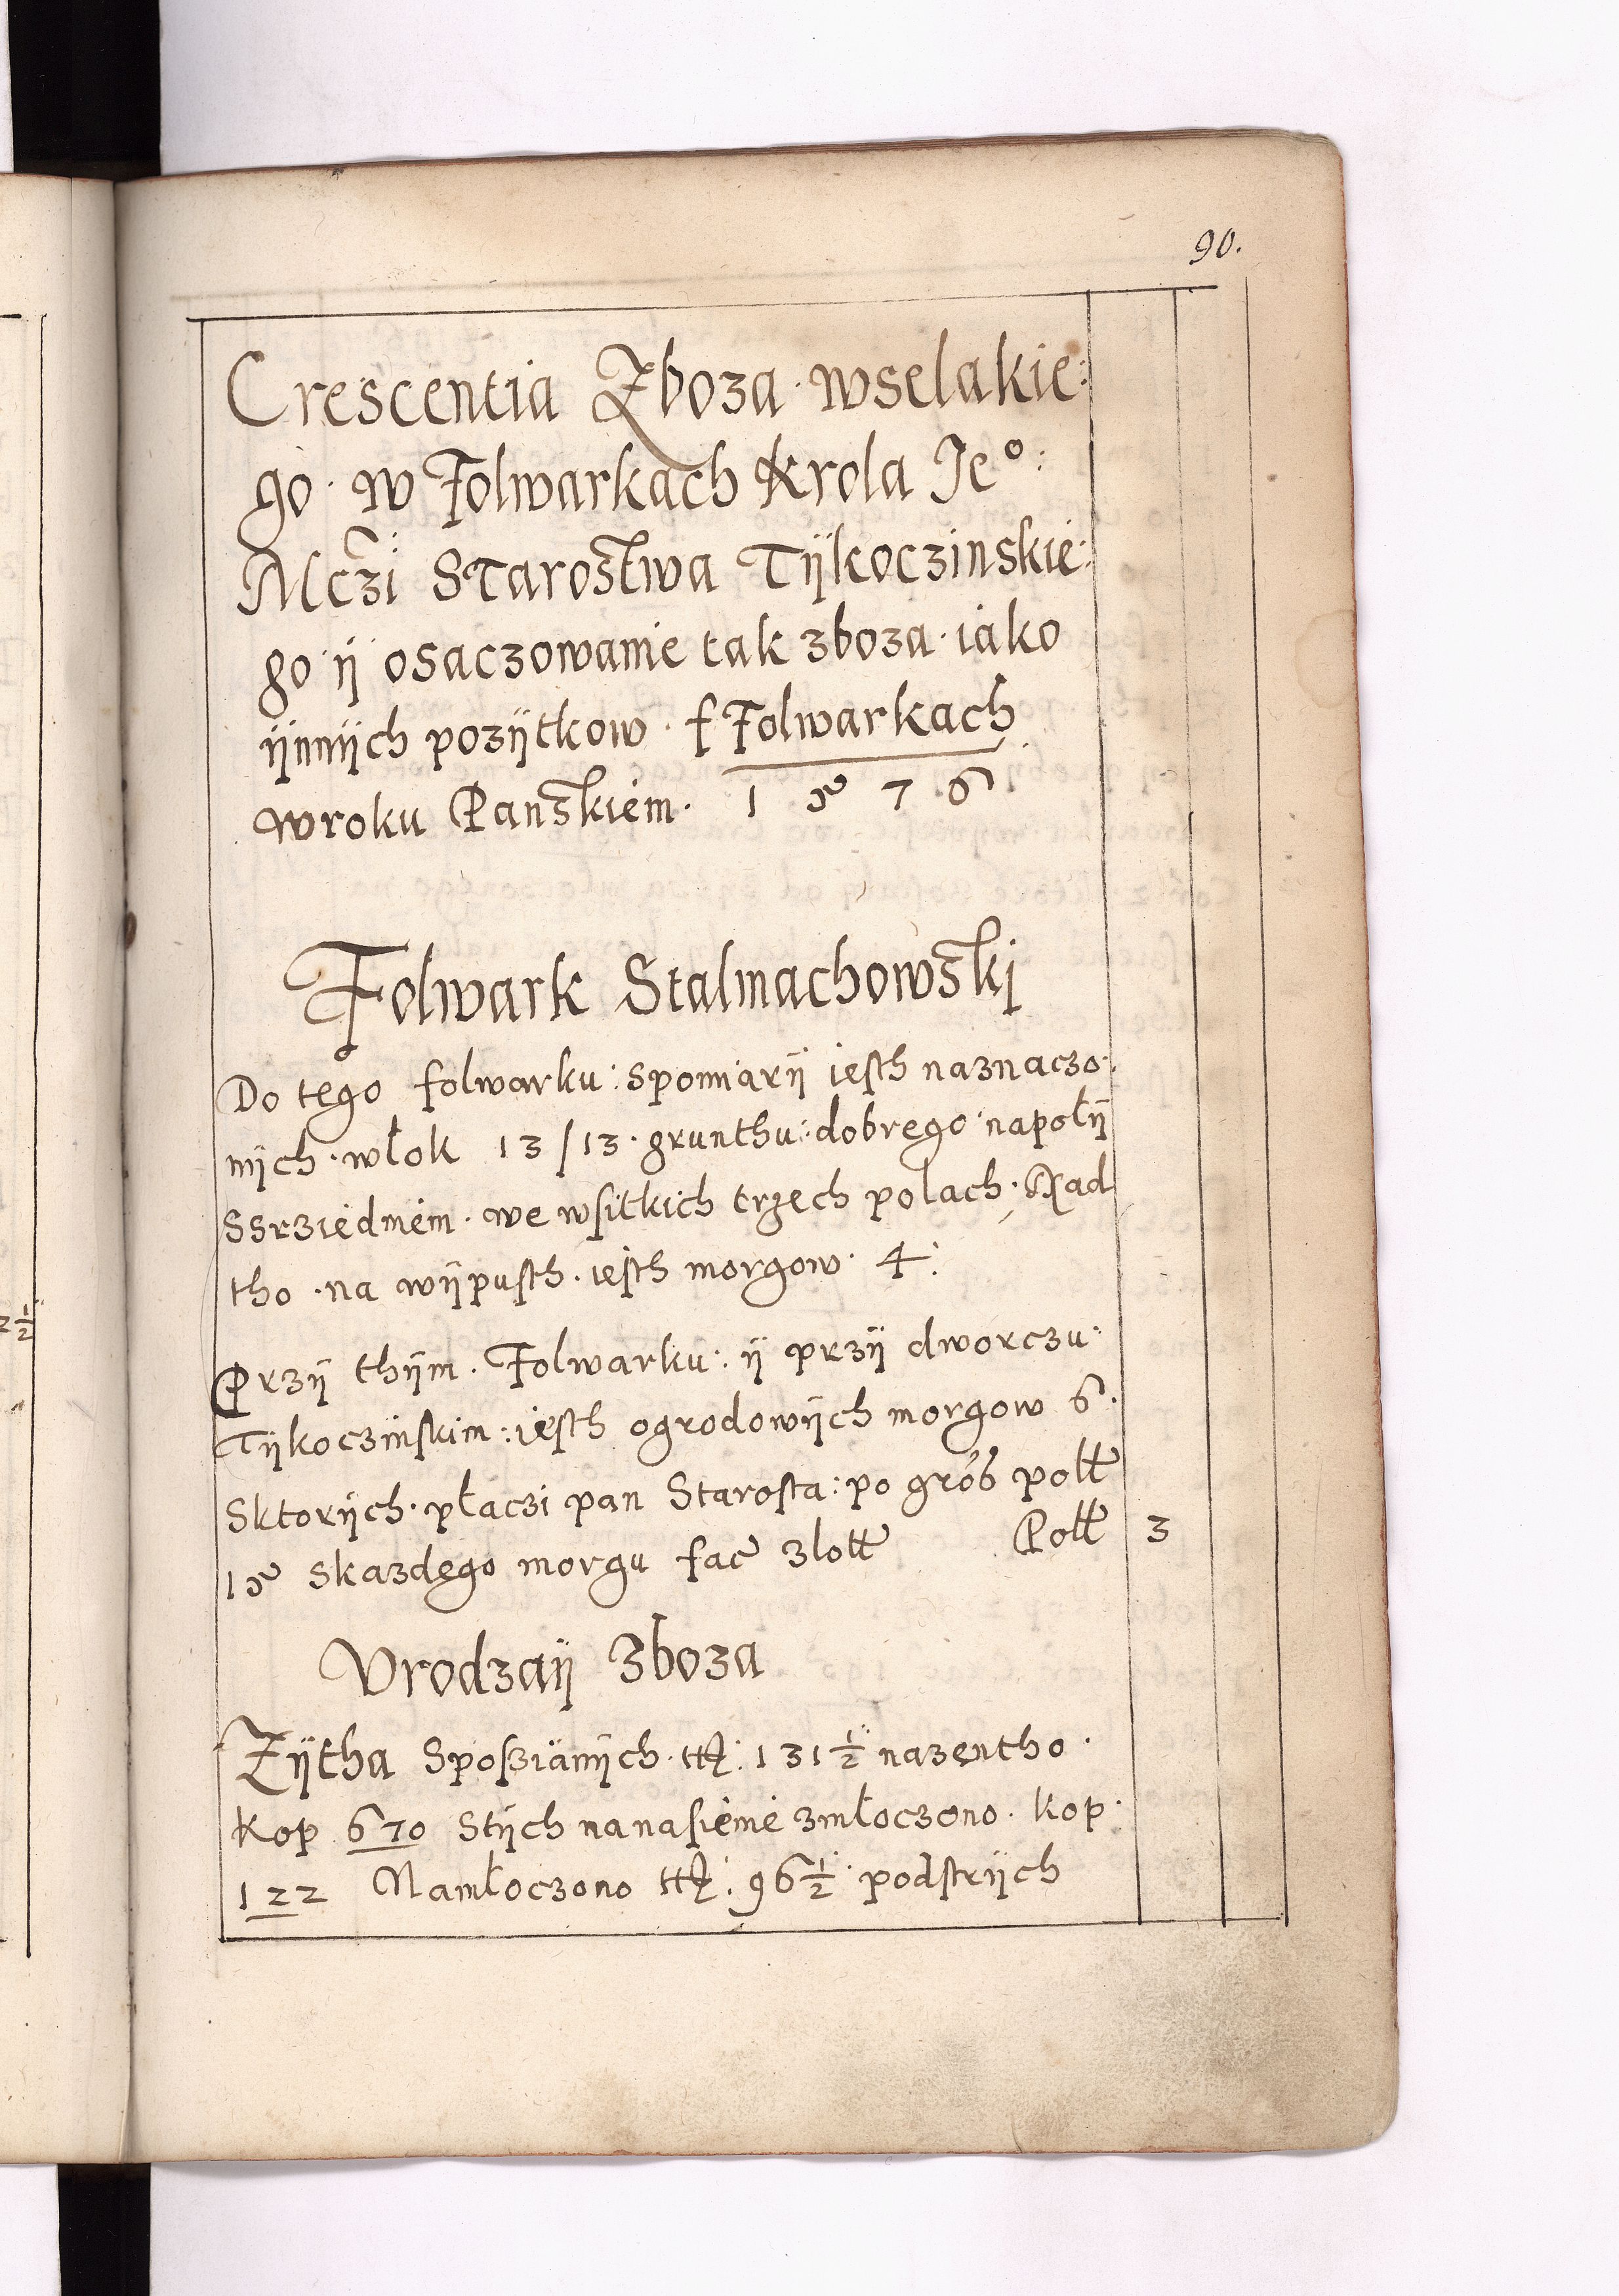 90.
Crescentia Zboza wselakie:
go w Folwarkach Krola Je°:
Mczi Starostwa Tÿkoczinskie:
go ÿ osaczowanie tak zboza iako
ÿnnÿch pozÿtkow f Folwarkach
w roku Panskiem. 1576
Folwark Stalmachowski
Do tego folwarku: spomiarÿ iesth naznaczo:
nich włok 13/13. grunthu: dobrego napołÿ
Ssrziednem. we wsitkich trzech polach. Nad
tho na wÿpusth. iesth morgow 4:
Przÿ thÿm. Folwarku: ÿ przÿ dworczu:
Tÿkoczinskim: iesth ogrodowÿch morgow 6.
Sktorÿch. płaczi pan Starosta: po gross poll
15 skazdego morgu fac zloll Poll 3
Urodzaÿ Zboza
Zÿtha Sposzianÿch 131½ nazentho.
Kop 670 Stÿch nanasienie zmłoczono. kop.
122 Namłoczono 96½ podstrÿch